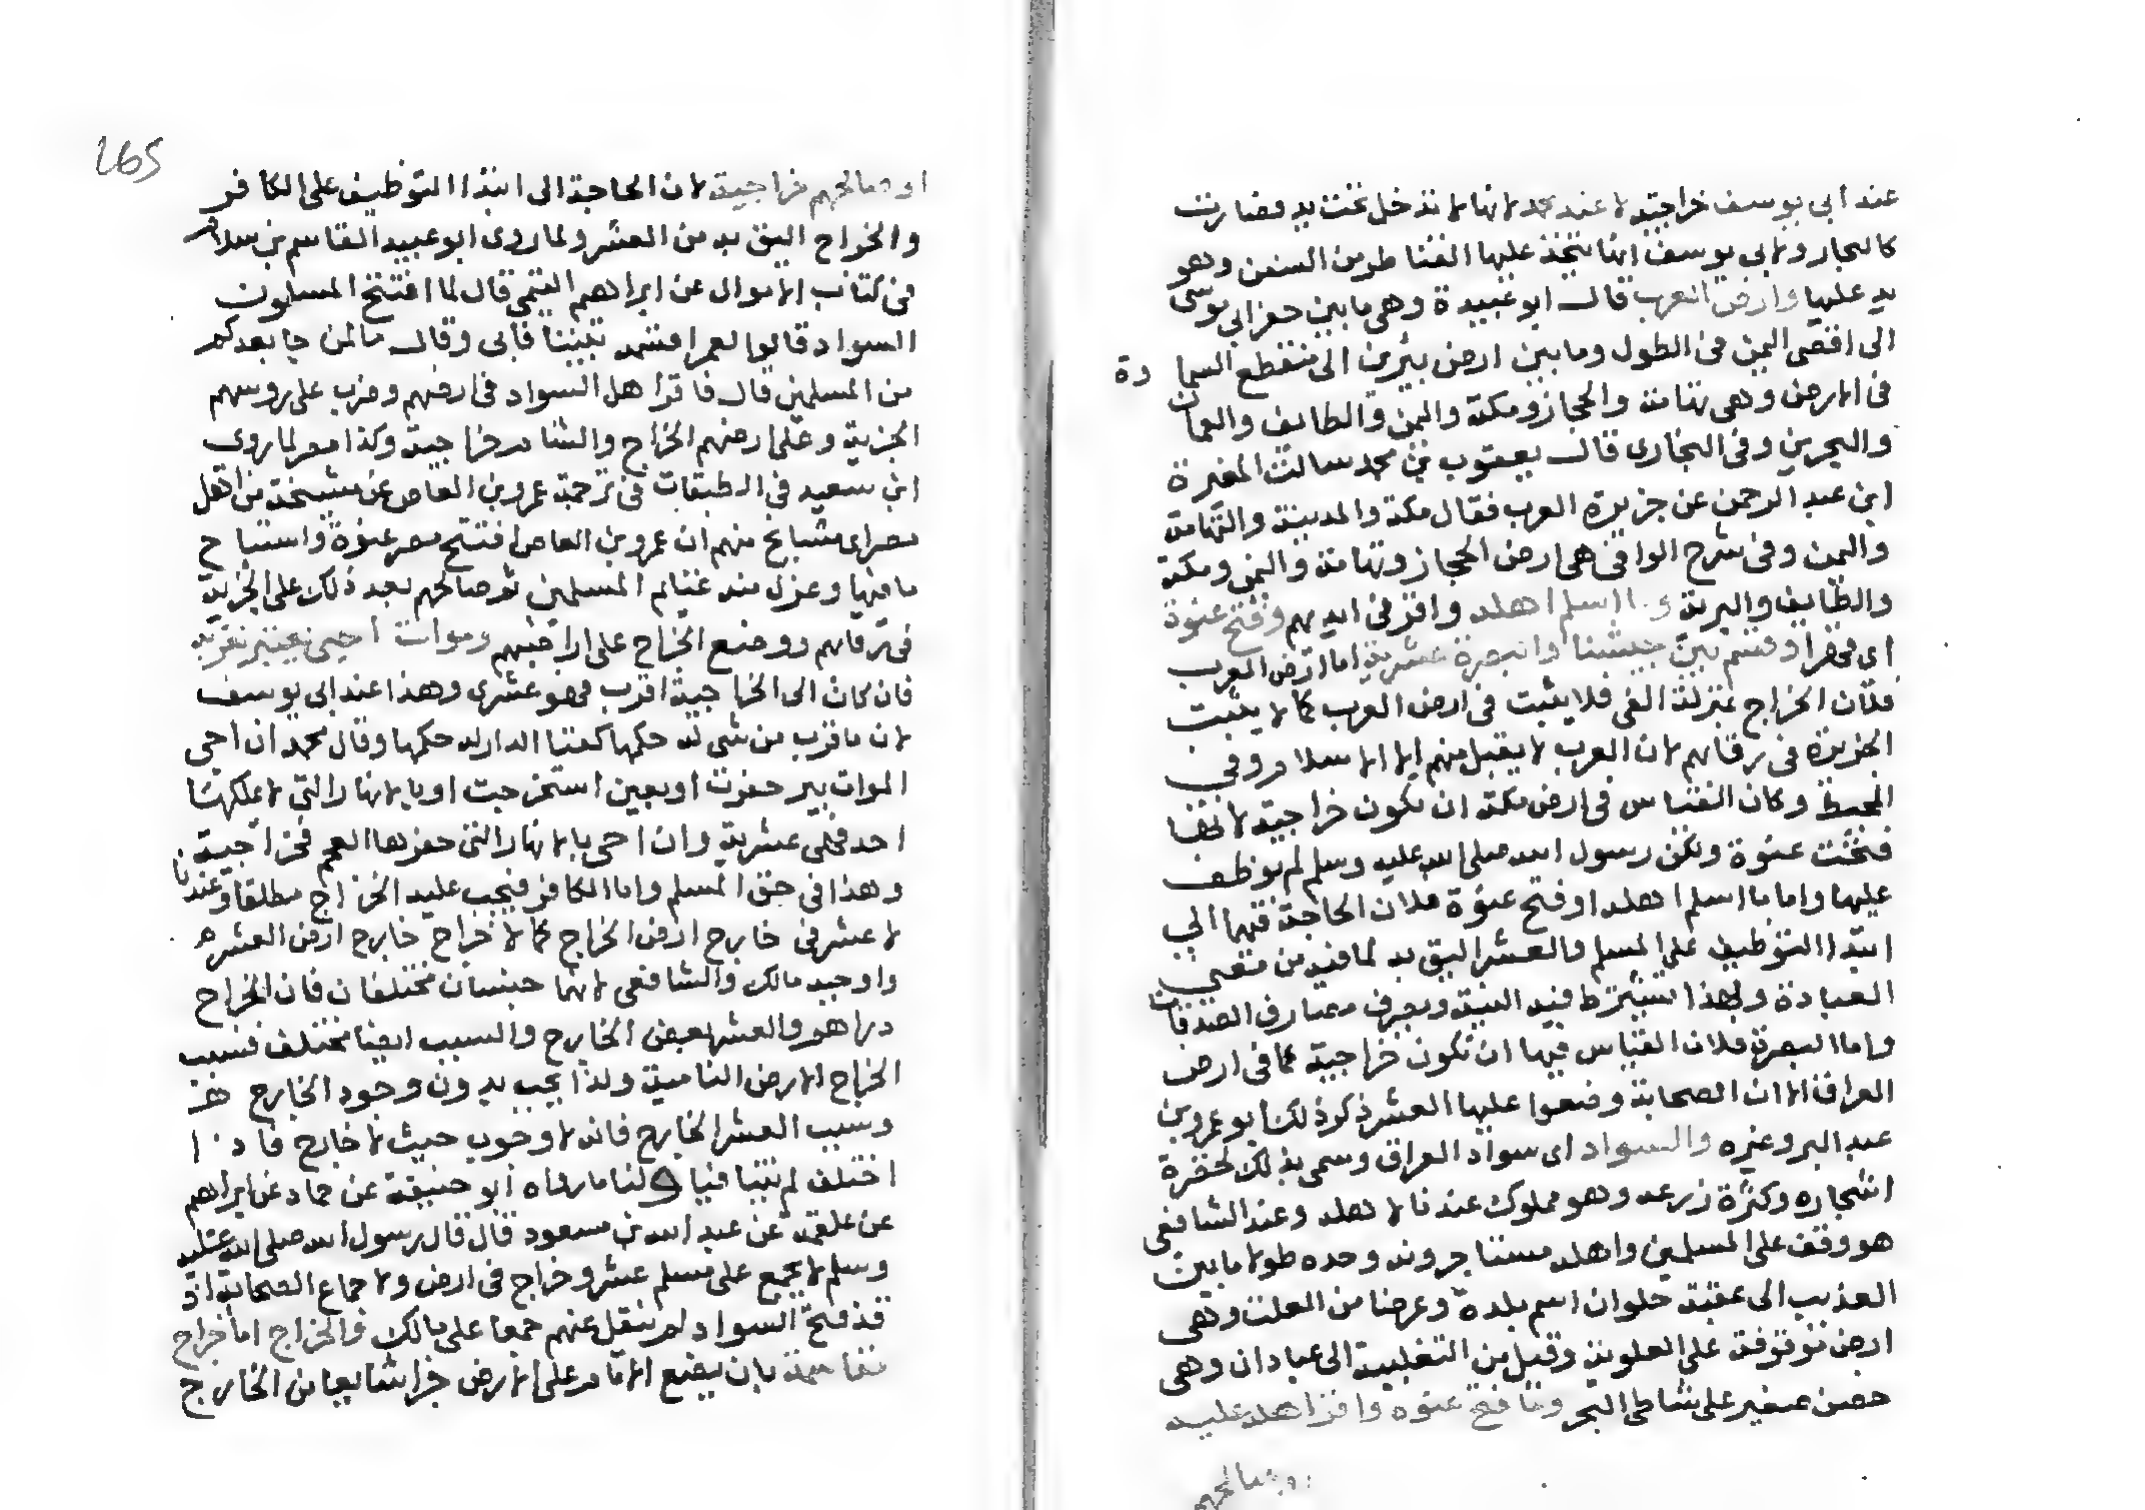 عند ابي يوسف خراجية لا عند محمد لانها لا تدخل تحت يد فصارت
كالبحار ولابي يوسف انها يتخذ عليها القناطر من السفن وهو
يد عليها وارض العرب قال ابو عبيدة وهي ما بين حفر ابي موسى
الى اقصى اليمن في الطول وما بين ارض يبرين الى منقطع السماوة
في الارض وهي تهامة والحجاز ومكة واليمن والطايف والعمان
والبحرين وفي البخاري قال يعقوب بن محمد سالت المغيرة
ابن عبد الرحمن عن جزيرة العرب فقال مكة والمدينة والتهامة
واليمن وفي شرح الوافي هي ارض الحجاز وتهامة واليمن ومكة
والطايف والبرية وما اسلم اهله واقر في ايديهم وفتح عنوة
اي قهرا وقسم بين جيشنا والبصرة عشرية اما ارض العرب
فلان الخراج بمنزلة الفي فلا يثبت في ارض العرب كما لا يثبت
الجزية في رقابهم لان العرب لا يقبل منهم الا الاسلام وفي
المحيط وكان القياس في ارض مكة ان تكون خراجية لانها
فتحت عنوة ولكن رسول الله صلى الله عليه وسلم لم يوظف
عليها واما ما اسلم اهله او فتح عنوة فلان الحاجة فيها الي
ابتدا التوظيف على المسلم والعشر اليق به لما فيه من معنى
العبادة ولهذا تشترط فيه النية ويصرف مصارف الصدقات
واما البصرة فلان القياس فيها ان تكون خراجية كما في ارض
العراق الا ان الصحابة وضعوا عليها العشر ذكر ذلك ابو عمرو بن
عبد البر وغيره والسواد اي سواد العراق وسمي بذلك لخضرة
اشجاره وكثرة زرعه وهو مملوك عندنا لاهله وعند الشافعي
هو وقف على المسلمين واهله مستاجرونه وحده طولا ما بين
العذيب الى عقبة حلوان اسم بلدة وعرضا من العلث وهي
ارض موقوفة على العلوية وقيل من الثعلبية الى عبادان وهي
حصن صغير على شاطي البحر وما فتح عنوة واقر اهله عليه
او صالحهم
265
او صالحهم خراجية لان الحاجة الى ابتدا التوظيف على الكافر
والخراج اليق به من العشر ولما روى ابو عبيد القاسم بن سلام
في كتاب الاموال عن ابراهيم التيمي قال لما افتتح المسلمون
السواد قالوا لعمر اقسمه بيننا فابى وقال ما لمن جا بعدكم
من المسلمين قال فاقر اهل السواد في ارضهم وضرب على روسهم
الجزية وعلى ارضهم الخراج والشام خراجية وكذا مصر لما روى
ابن سعيد في الطبقات في ترجمة عمرو بن العاص عن مشيخة من اهل
مصر اي مشايخ منهم ان عمرو بن العاص افتتح مصر عنوة واستباح
ما فيها وعزل منه غنايم المسلمين ثم صالحهم بعد ذلك على الجزية
في رقابهم ووضع الخراج على اراضيهم وموات احيي يعتبر بقربه
فان كان الى الخراجية اقرب فهو عشري وهذا عند ابي يوسف
لان ما قرب من شي له حكمها كفنا الدار له حكمها وقال محمد ان احيى
الموات ببير حفرت او بعين استخرجت او بالانهار التي لا يملكها
احد فهي عشرية وان احيى بالانهار التي حفرها العجم فخراجية
وهذا في حق المسلم واما الكافر فيجب عليه الخراج مطلقا وعندنا
لا عشر في خارج ارض الخراج كما لا خراج خارج ارض العشر
واوجبه مالك والشافعي لانهما جنسان مختلفان فان الخراج
دراهم والعشر بعض الخارج والسبب ايضا مختلف فسبب
الخراج الارض النامية ولذا يجب بدون وجود الخارج
وسبب العشر الخارج فانه لا وجوب حيث لا خارج فاذا
اختلف لم يتنافيا ولنا ما رواه ابو حنيفة عن حماد عن ابراهيم
عن علقمة عن عبد الله بن مسعود قال قال رسول الله صلى الله عليه
وسلم لا يجمع على مسلم عشر وخراج في ارض ولاجماع الصحابة اذ
قد فتح السواد لم ينقل عنهم جمعا على مالك والخراج اما خراج
مقاسمة بان يضع الامام على الارض جزا شايعا من الخارج